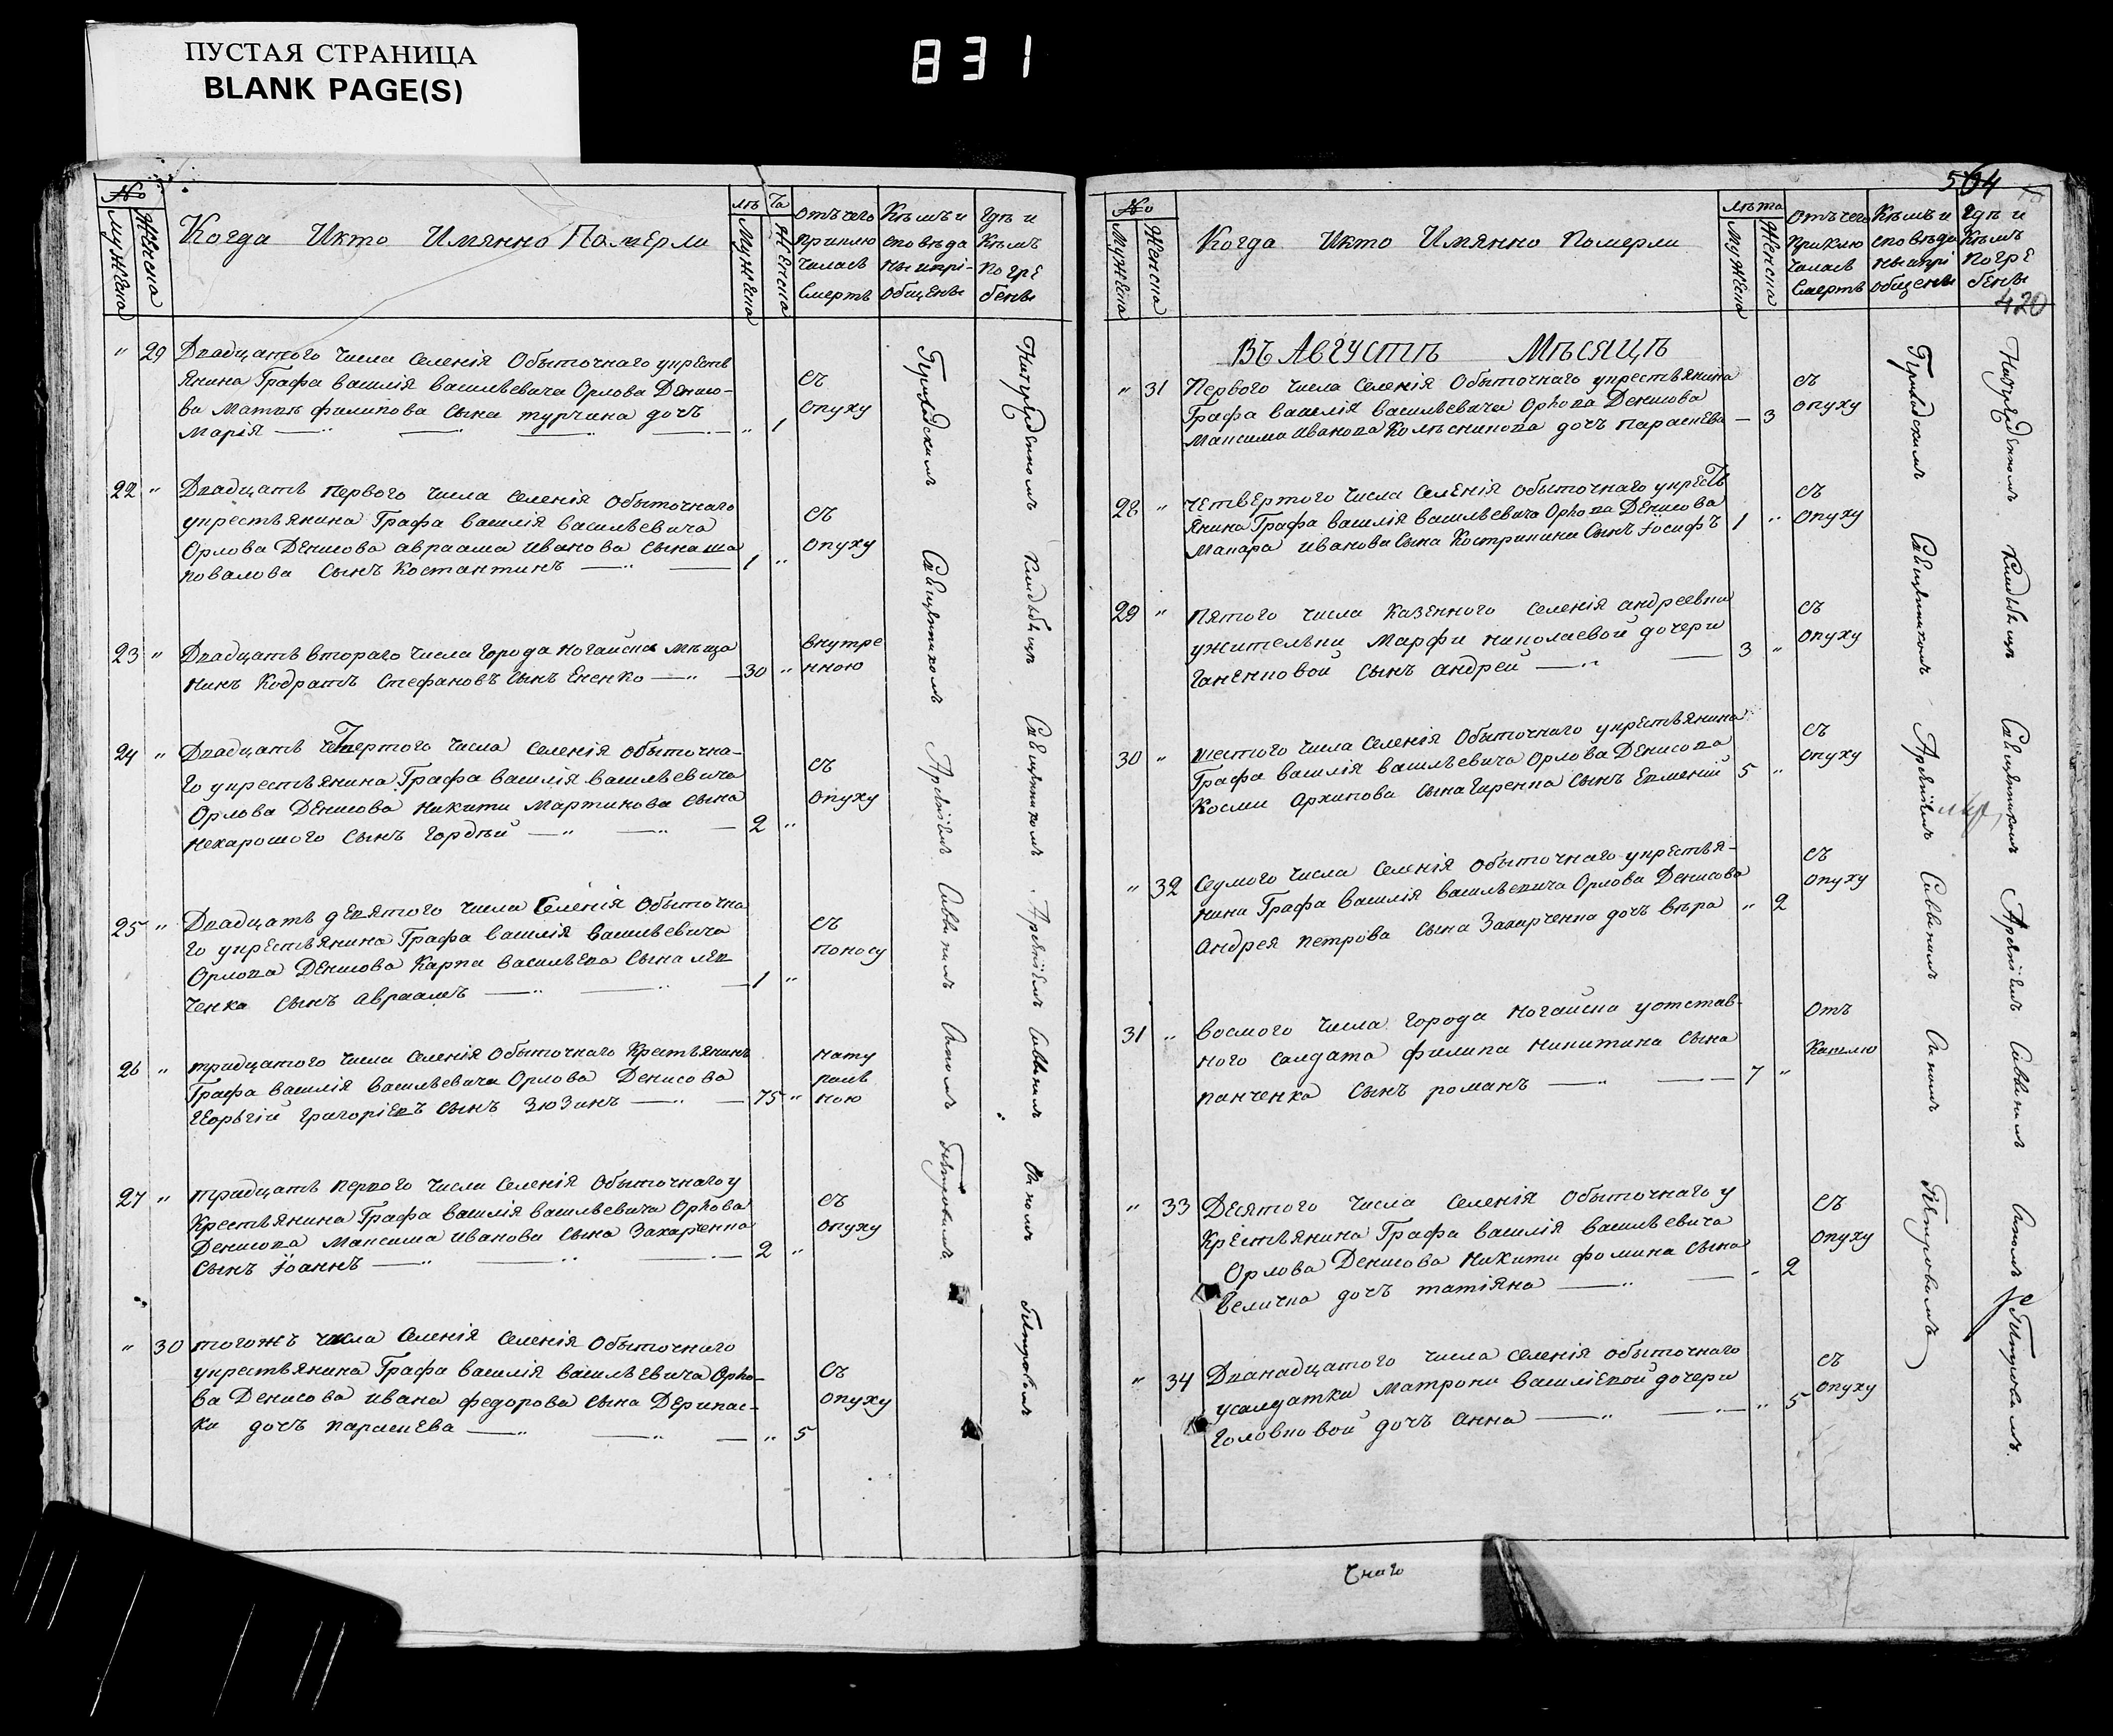 ПУСТАЯ СТРАНИЦА
BLANK PAGE(S)
831
№
Мужеска
Женска
Когда Икто Имянно Померли
лѣ та
Мужеска
Женска
Отъчего приклю чалась Смерть
Кѣмъ и сповѣда ны ипрі- общены
Гдѣ и Кѣмъ погре бены
" 29 Двадцатого числа селенія Обыточнаго укрестъ
янина Графа василія васильевича Орлова Денисо-
ва Матвѣя филипова сына турчина дочь
Марія " 1
съ
опуху
22 " Двадцать первого числа селенія обыточнаго
укрестьянина Графа василія васильевича
Орлова Денисова авраама иванова сына ша
повалова сынъ Костантинъ 1 "
съ
опуху
23 " Двадцать втораго числа города ногайска мѣща
нинъ Кодратъ Стефановъ сынъ Ененко 30 "
внутре
нною
24 " Двадцать четвертого числа селенія обыточна-
го укрестьянина Графа василія васильевича
Орлова Денисова никити мартинова сына
нехарошого сынъ гордѣй 2 "
съ
опуху
25 " Двадцать девятого числа Селенія Обыточна
го укрестьянина Графа василія васильевича
Орлова Денисова Карпа васильева сына лев
ченка сынъ авраамъ 1 "
съ
поносу
26 " тридцатого числа селенія обыточнаго Крестьянинъ
Графа василія васильевича Орлова Денисова
Георьгій григоріевъ сынъ Зюзинъ 75 "
нату
раль
ною
27 " тридцать первого числа селенія Обыточнаго у
Крестьянина Графа василія васильевича Орлова
Денисова Максима иванова сына Захарченка
сынъ іоаннъ 2 "
съ
опуху
" 30 тогожъ числа селенія селенія Обыточного
укрестьянина Графа василія васильевича Орло-
ва Денисова ивана федорова сына Дерипас-
ки дочь параскева " 5
съ
опуху
Гернадскимъ Священникомъ Арсеніемъ Саввинимъ Сыномъ Петровимъ
Наприходскомъ Кладбищѣ Священникомъ Арсеніемъ Саввинимъ Сыномъ Петровимъ
504
№
Мужеска
Женска
Когда Икто Имянно Померли
лѣта
Мужеска
Женска
Отъчего приклю чалась Смерть
Кѣмъ и сповѣда ны ипрі общены
Гдѣ и Кѣмъ погре бены
420
ВЪ АВГУСТѢ МѢСЯЦѢ
" 31 Первого числа селенія Обыточнаго укрестьянина
Графа василія васильевича Орлова Денисова
Максима иванова Колѣсникова дочь параскева — 3
съ
опуху
28 " четвертого числа селенія обыточнаго укресть
янина Графа василія васильевича Орлова Денисова
Макара иванова сына Кострикина сынъ іосифъ 1 "
съ
опуху
29 " пятого числа казенного селенія андреевки
ужительки марфи николаевой дочери
Ганенковой сынъ андрей 3 "
съ
опуху
30 " шестого числа селенія Обыточнаго укрестьянина
Графа василія васильевича Орлова Денисова
Косми архипова сына гиренка сынъ Евменій 5 "
съ
опуху
" 32 седмого числа селенія обыточнаго укрестья-
нина Графа василія васильевича Орлова Денисова
андрея петрова сына Захарченка дочь вѣра " 2
съ
опуху
31 " восмого числа города ногайска уотстав-
ного салдата филипа никитина сына
панченка сынъ романъ 7 "
отъ
кашлю
" 33 Десятого числа селенія обыточнаго у
Крестьянина Графа василія васильевича
Орлова Денисова Никити фомина сына
величка дочь татіяна - 2
съ
опуху
" 34 Дванадцатого числа селенія обыточнаго
усалдатки матрони василіевой дочери
головковой дочь анна " 5
съ
опуху
Священникомъ Арсеніемъ Саввинимъ Сыномъ Петровимъ
Наприходскомъ Кладбищѣ Священникомъ Арсеніемъ Саввинимъ Сыномъ Петровимъ
чнаго